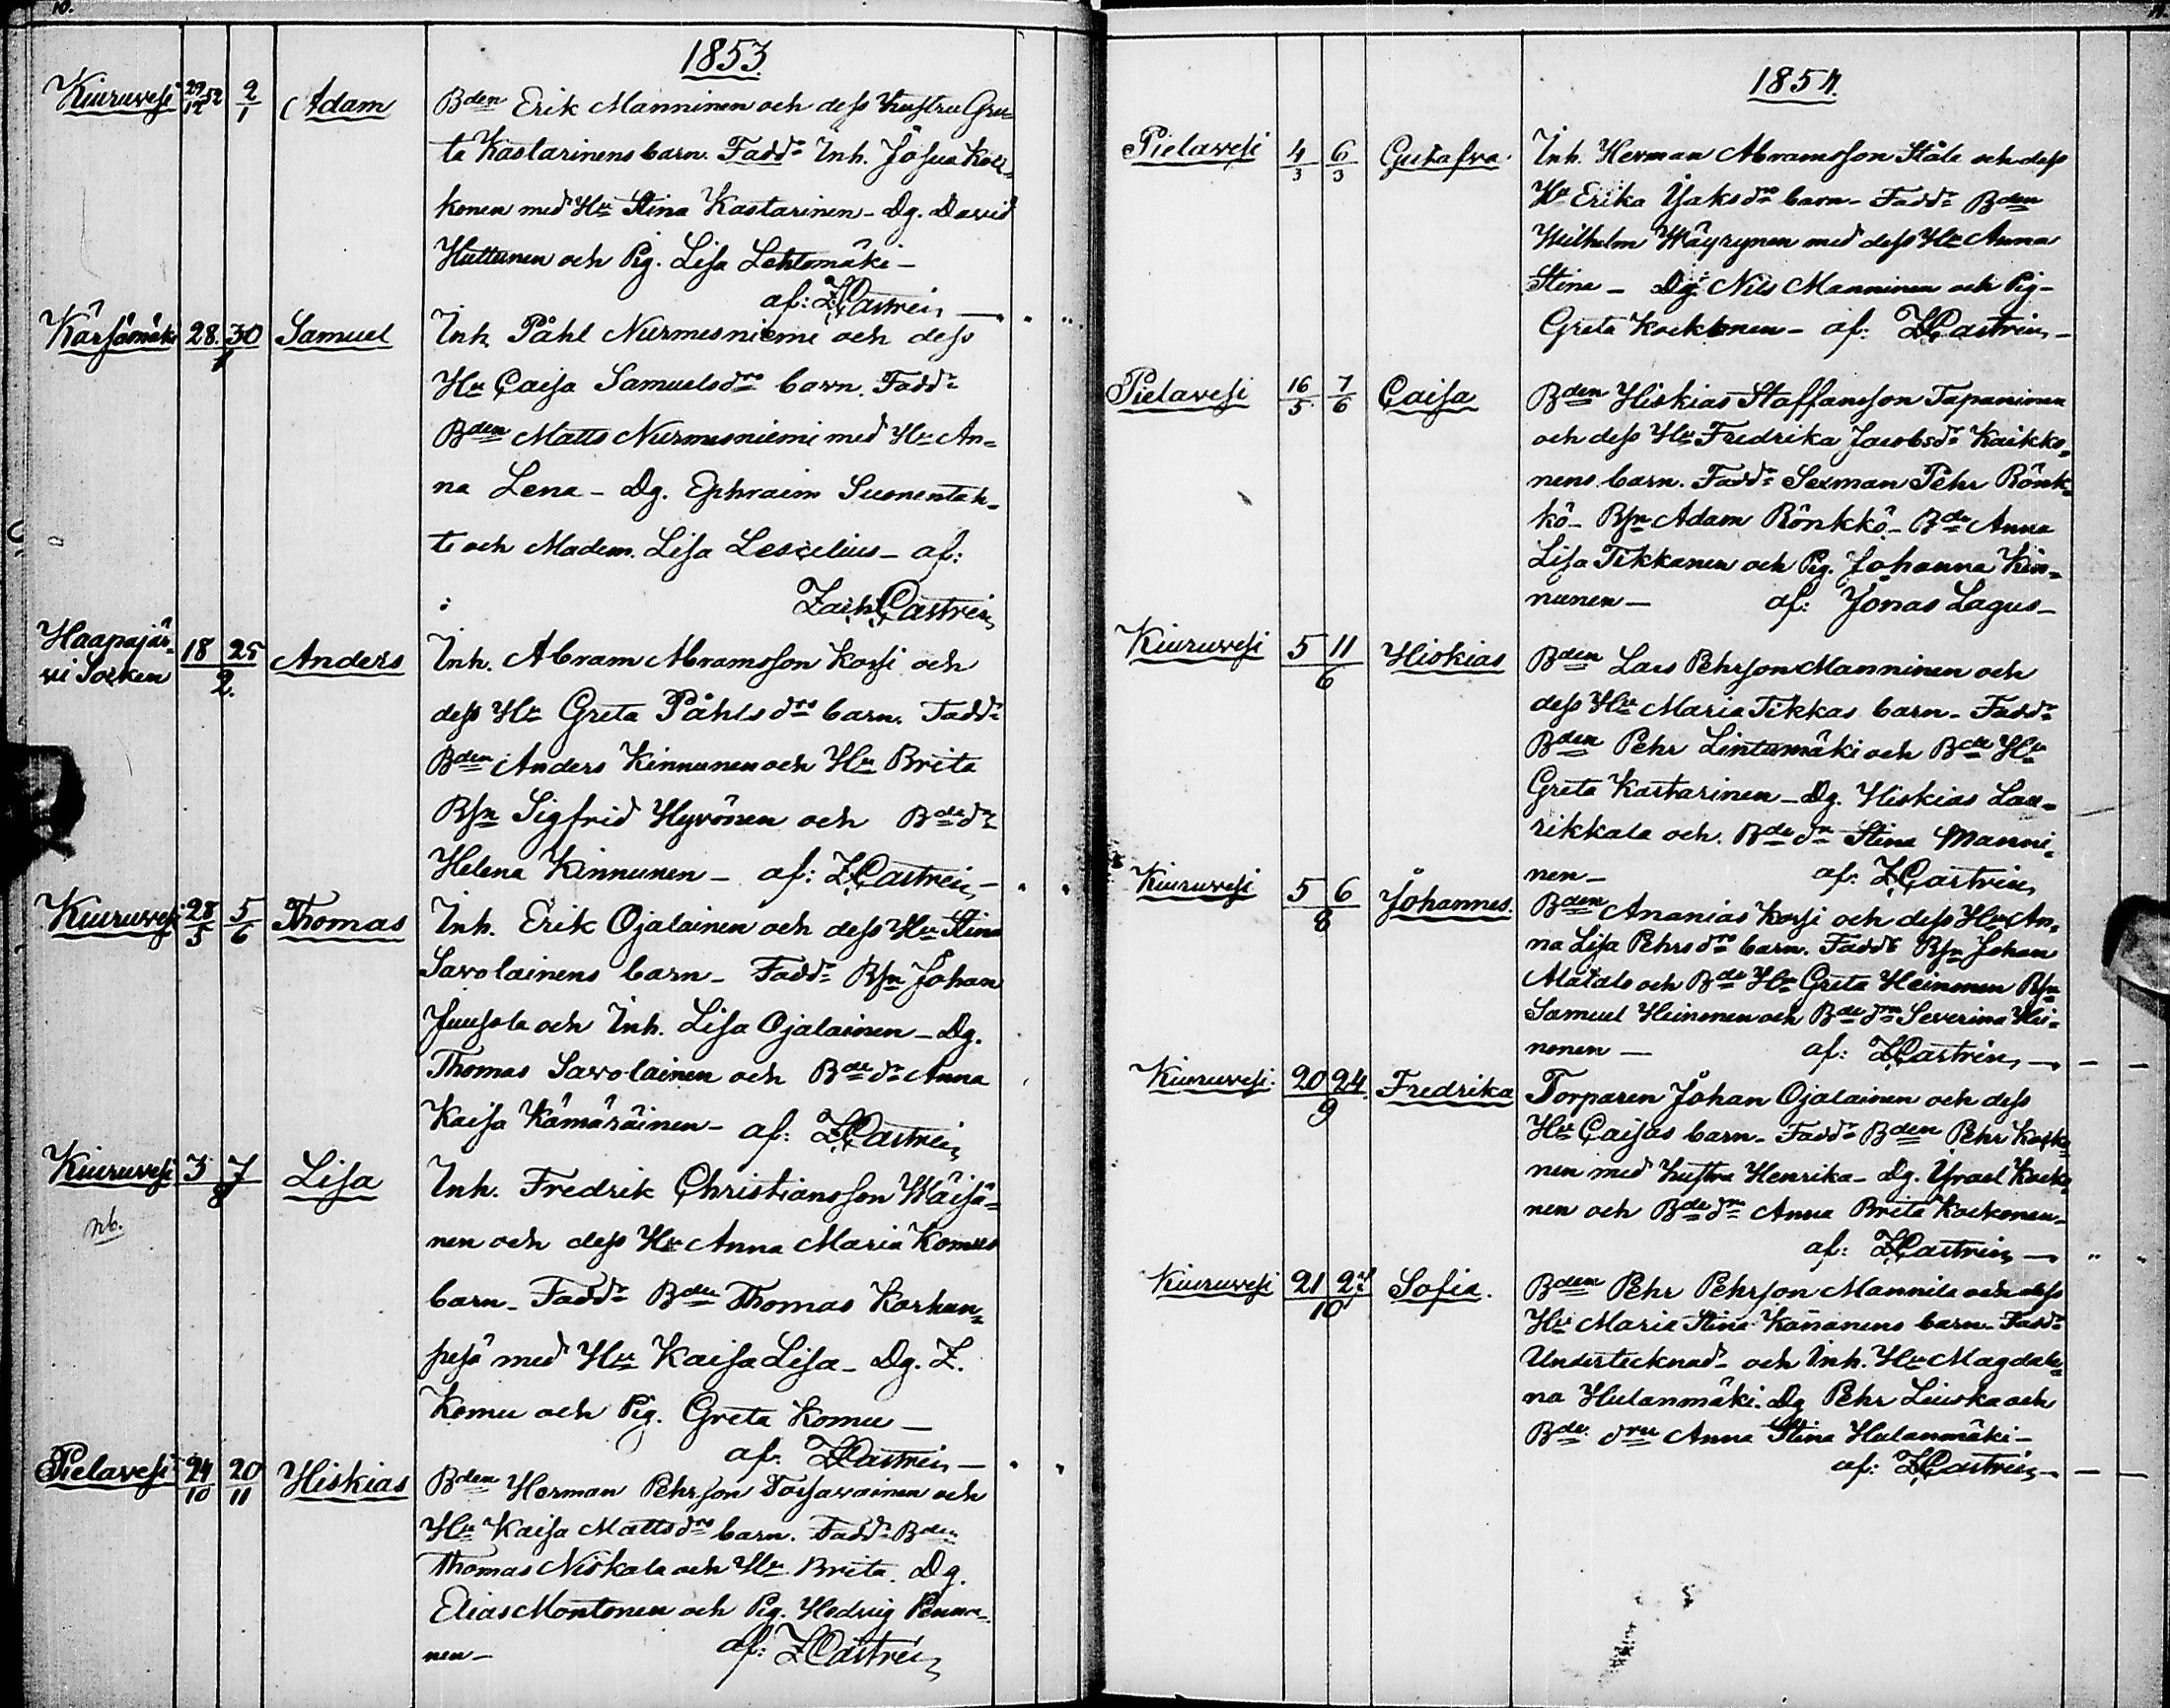 10.
1853.
Kiuruvesi 29/12 52 2/1 Adam Bden Erik Manninen och dess hustru Gre=
ta Kastarinens barn. Faddr Inh. Josua Koc=
konen med Hu Stina Kastarinen – Dg. David
Huttunen och Pig. Lisa Lehtomäki –
af: ZCastrén
Kärsämäki 28. 30 1 Samuel Inh. Påhl Nurmesniemi och dess
Hu Caisa Samuelsdrs barn. Faddr
Bden Matts Nurmesniemi med Hu An=
na Lena – Dg. Ephraim Suonentah=
ti och Madem. Lisa Lescelius – af:
Zach. Castrén
Haapajär=
vi Socken 18 25 2. Anders Inh. Abram Abramsson Korsi och
dess Hu Greta Påhlsdrs barn. Faddr
Bden Anders Kinnunen och Hu Brita
Bsn Sigfrid Hyvönen och Bdedr
Helena Kinnunen – af: ZCastrén –
Kiuruvesi 28/5 5/6 Thomas Inh. Erik Ojalainen och dess Hu Stina
Savolainens barn – Faddr Bsn Johan
Juusola och Inh. Lisa Ojalainen – Dg.
Thomas Savolainen och Bdedr Anna
Kaisa Kämäräinen – af: ZCastrén
Kiuruvesi 3 7 8 Lisa Inh. Fredrik Christiansson Wäisä=
nb.
nen och dess Hu Anna Maria Komus
barn – Faddr Bden Thomas Korhan=
pesä med Hu Kaisa Lisa – Dg. Z.
Komu och Pig. Greta Komu –
af. ZCastrén –
Pielavesi 24/10 20/11 Hiskias Bden Herman Pehrson Tossavainen och
Hu Kaisa Mattsdrs barn. Faddr Bden
Thomas Niskala och Hu Brita. Dg.
Elias Montonen och Pig. Hedvig Penna=
nen – af: ZCastrén
11.
1854.
Pielavesi 4/3 6/3 Gustafva. Inh. Herman Abramsson Ståle och dess
Hu Erika Isaksdrs barn – Faddr Bden
Wilhelm Wäyrynen med dess Hu Anna
Stina – Dg. Nils Manninen och Pig –
Greta Kockonen – af: ZCastrén –
Pielavesi 16/5 7/6 Caisa Bden Hiskias Staffansson Tapaninen
och dess Hu Fredrika Jacobsdr Kaikko=
nens barn. Faddr Sexman Pehr Rönk=
kö – Bsn Adam Rönkkö – Bde Anna
Lisa Tikkanen och Pig. Johanna Kin=
nunen – af: Jonas Lagus –
Kiuruvesi 5 11 6 Hiskias Bden Lars Pehrson Manninen och
dess Hu Maria Tikkas barn – Faddr
Bden Pehr Lintumäki och Bde Hu
Greta Kastarinen – Dg. Hiskias Lau=
rikkala och Bdedr Stina Manni=
nen – af: ZCastrén
Kiuruvesi 5 6 8 Johannes. Bden Ananias Korsi och dess Hu An=
na Lisa Pehrsdrs barn. Faddr Bsn Johan
Alatalo och Bde Hu Greta Heinonen Bsn
Samuel Heinonen och Bdedr Severina Hei=
nonen – af: ZCastrén –
Kiuruvesi 20 24 9 Fredrika Torparen Johan Ojalainen och dess
Hu Caisas barn – Faddr Bden Pehr Kocko=
nen med hustru Henrika – Dg. Israel Kocko=
nen och Bdedr Anna Brita Kockonen –
af: ZCastrén –
Kiuruvesi 21 10 Sofia. Bden Pehr Pehrson Mannila och dess
Hu Maria Stina Kananens barn – Faddr
Undertecknad – och Inh. Hu Magdale=
na Hulanmäki. Dg Pehr Liuska och
Bde dru Anna Stina Hulanmäki –
af: ZCastrén –